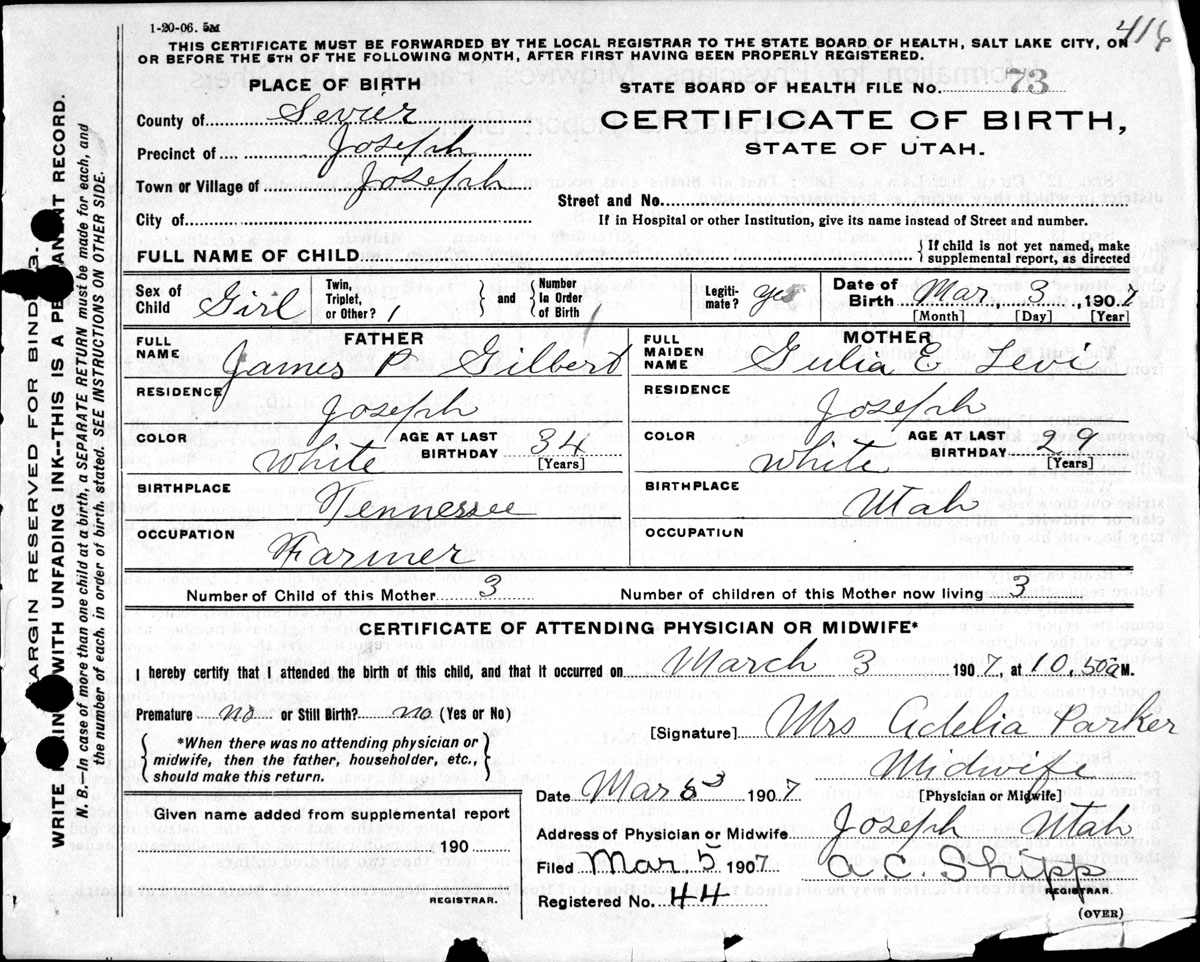 1-20-06. 5M
416
THIS CERTIFICATE MUST BE FORWARDED BY THE LOCAL REGISTRAR TO THE STATE BOARD OF HEALTH, SALT LAKE CITY, ON
OR BEFORE THE 5TH OF THE FOLLOWING MONTH, AFTER FIRST HAVING BEEN PROPERLY REGISTERED.
PLACE OF BIRTH
STATE BOARD OF HEALTH FILE No. 73
County of Sevier
CERTIFICATE OF BIRTH,
STATE OF UTAH.
Precinct of Joseph
Town or Village of Joseph
Street and No.
City of
If in Hospital or other Institution, give its name instead of Street and number.
FULL NAME OF CHILD
{If child is not yet named, make
supplemental report, as directed
Sex of Child Girl
Twin, Triplet, or Other? 1
and
Number In Order of Birth 1
Legitimate? yes
Date of Birth Mar 3, 1907
[Month] [Day] [Year]
FATHER
MOTHER
FULL NAME James P Gilbert
FULL MAIDEN NAME Gulia E Levi
RESIDENCE Joseph
RESIDENCE Joseph
COLOR White AGE AT LAST BIRTHDAY 34 [Years]
COLOR White AGE AT LAST BIRTHDAY 29 [Years]
BIRTHPLACE Tennessee
BIRTHPLACE Utah
OCCUPATION Farmer
OCCUPATION
Number of Child of this Mother 3 Number of children of this Mother now living 3
CERTIFICATE OF ATTENDING PHYSICIAN OR MIDWIFE*
I hereby certify that I attended the birth of this child, and that it occurred on March 3 1907, at 10,50a M.
Premature no or Still Birth? no (Yes or No)
[Signature] Mrs Adelia Parker
{*When there was no attending physician or
midwife, then the father, householder, etc.,
should make this return.}
Midwife
[Physician or Midwife]
Date Mar 3 1907
Given name added from supplemental report
190
REGISTRAR.
Address of Physician or Midwife Joseph Utah
Filed Mar, 5 1907 A. C. Shipp
REGISTRAR.
Registered No. 44
(OVER)
MARGIN RESERVED FOR BINDING.
WRITE PLAINLY WITH UNFADING INK--THIS IS A PERMANENT RECORD.
N. B.—In case of more than one child at a birth, a SEPARATE RETURN must be made for each, and
the number of each, in order of birth, stated. SEE INSTRUCTIONS ON OTHER SIDE.